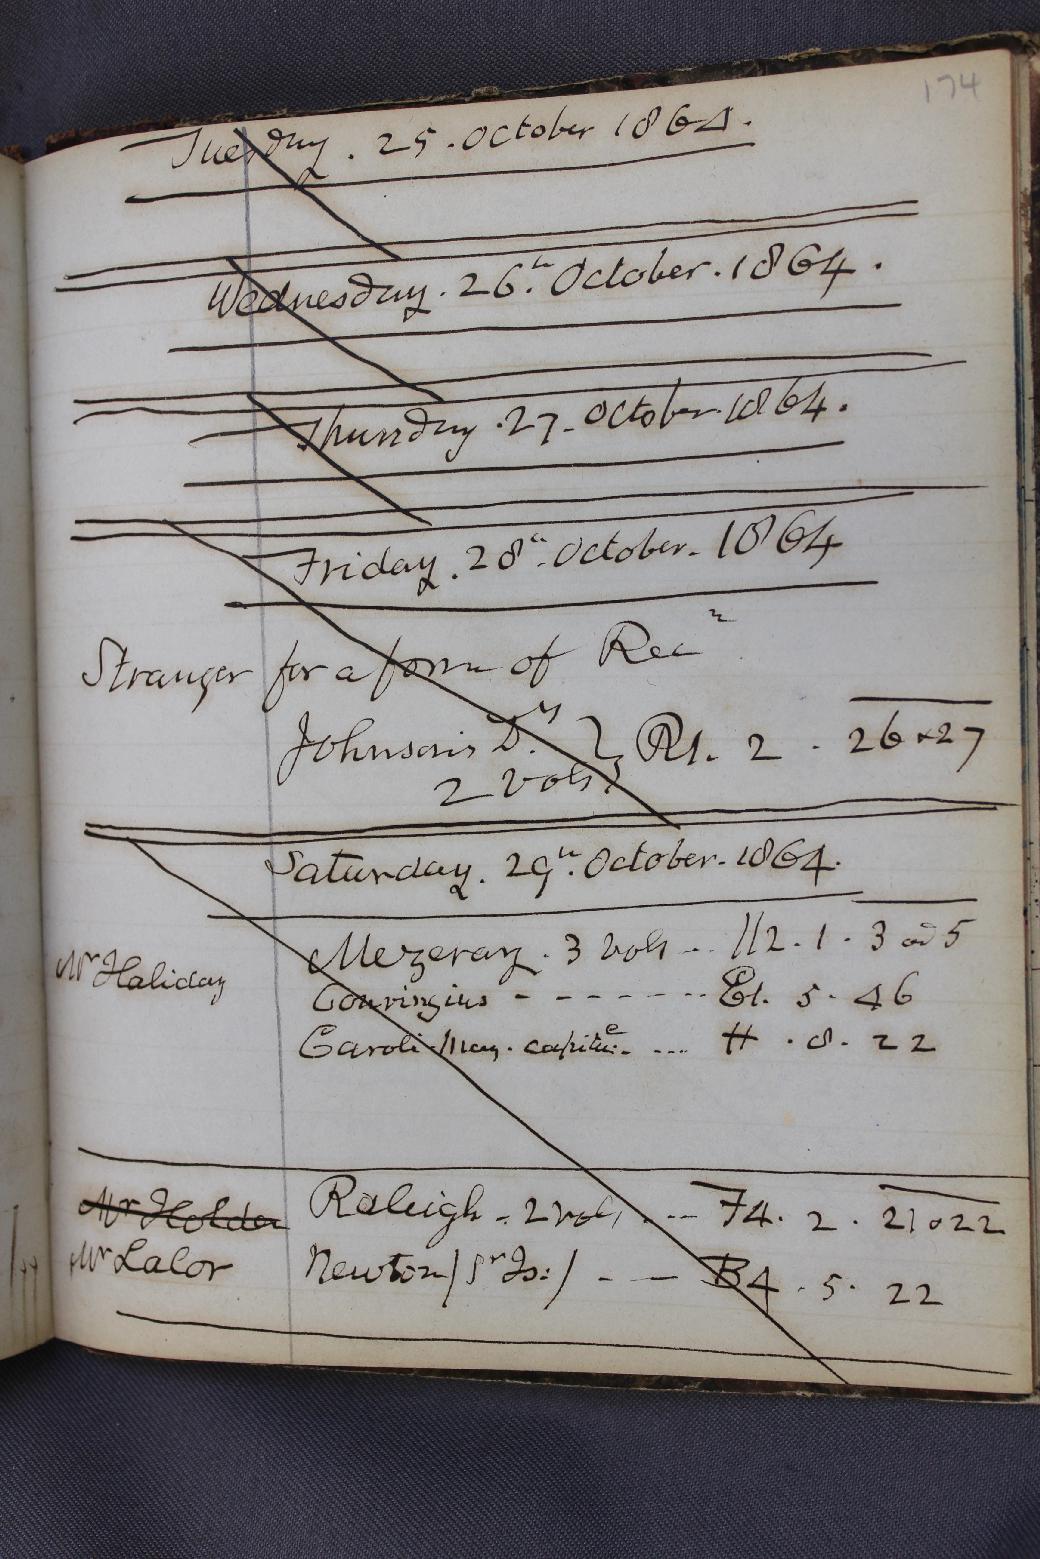 174
Tuesday. 25. October 1864.
Wednesday. 26.th October. 1864.
Thursday. 27. October. 1864.
Friday. 28th. October. 1864
Stranger for a form of Recn
Johnson's D.y } R1. 2. 26 & 27
2 vols
Saturday. 29th. October. 1864.
Mezeray. 3 vols -- 112. 1. 3 and 5
Mr Haliday
Conringius - - - - - - - E1. 5. 46
Caroli Mag. capitu.e --- H. 8. 22
Raleigh - 2 vols. --- F4. 2. 21 & 22
Mr Holder
Mr Lalor
Newton (Sr Is:) - - B4. 5. 22